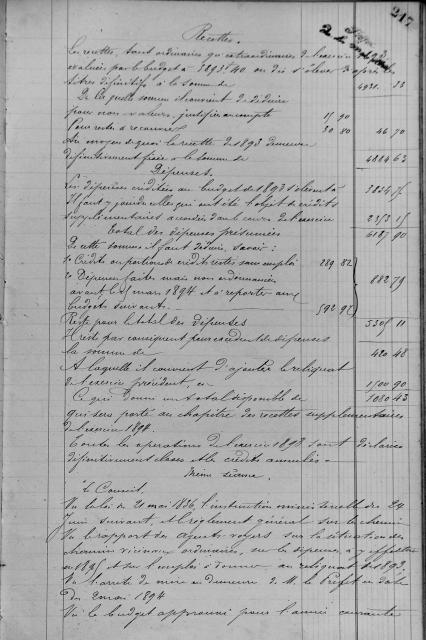 247
Recettes.
Les recettes, tant ordinaires qu'extraordinaires de l'exercice 1893
évaluées par le budget à 3893f 40 ont dû s'élever d'après les
titres définitifs à la somme de 4931. 33
De laquelle somme il convient de déduire
pour non valeurs, justifiées au compte 15 90
Pour restes à recouvrer 30 80 46 70
Au moyen de quoi la recette de 1893 demeure
définitivement fixée à la somme de 4884 63
Dépenses.
Les dépenses créditées au budget de 1893 s'élèvent à 3834 75
Il faut y joindre celles qui ont été l'objet de crédits
supplémentaires accordés dans le cours de l'exercice 2353 15
Total des dépenses présumées 6187 90
De cette somme il faut déduire, savoir :
1° Crédits ou portions de crédit restés sans emploi 289 82
2° Dépenses faites mais non ordonnancées 882 79
avant le 15 mars 1894 et à reporter aux
budgets suivants 592 97
Reste pour le total des dépenses 5305 11
Il reste par conséquent pour excédent de dépenses
la somme de 420 48
A laquelle il convient d'ajouter le reliquat
de l'exercice précédent, ou 1500 90
Ce qui donne un total disponible de 1080 43
qui sera porté au chapitre des recettes supplémentaires
de l'exercice 1894.
Toutes les opérations de l'exercice 1893 sont déclarées
définitivement closes et les crédits annulés.
Même séance.
Le Conseil,
Vu la loi du 21 mai 1836, l'instruction ministérielle du 24
Juin suivant, et le règlement général sur les chemins
Vu le rapport des agents voyers sur la situation des
chemins vicinaux ordinaires, sur les dépenses à y effectuer
en 1895 et sur l'emploi à donner au reliquat de 1893.
Vu l'arrêté de mise en demeure de M. le Préfet en date
du 2 mai 1894
Vu le budget approuvé pour l'année courante